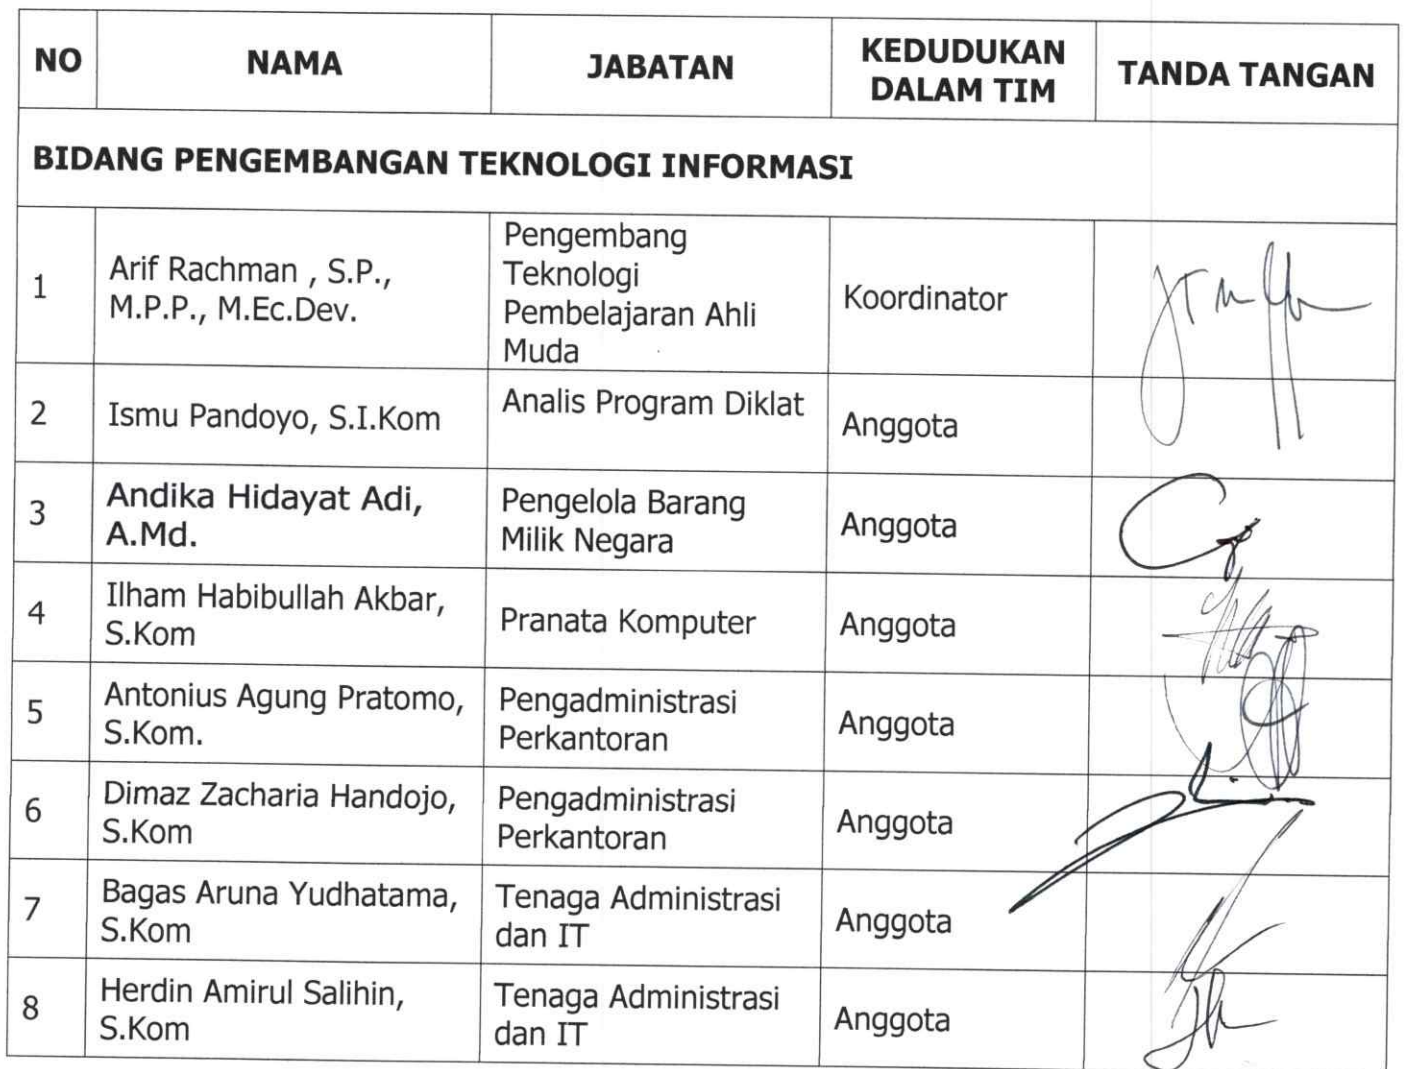 NO NAMA JABATAN KEDUDUKAN DALAM TIM TANDA TANGAN
BIDANG PENGEMBANGAN TEKNOLOGI INFORMASI
1
Arif Rachman , S.P.,
M.P.P., M.Ec.Dev.
Pengembang
Teknologi
Pembelajaran Ahli
Muda
Koordinator
2
Ismu Pandoyo, S.I.Kom
Analis Program Diklat
Anggota
3
Andika Hidayat Adi,
A.Md.
Pengelola Barang
Milik Negara
Anggota
4
Ilham Habibullah Akbar,
S.Kom
Pranata Komputer
Anggota
5
Antonius Agung Pratomo,
S.Kom.
Pengadministrasi
Perkantoran
Anggota
6
Dimaz Zacharia Handojo,
S.Kom
Pengadministrasi
Perkantoran
Anggota
7
Bagas Aruna Yudhatama,
S.Kom
Tenaga Administrasi
dan IT
Anggota
8
Herdin Amirul Salihin,
S.Kom
Tenaga Administrasi
dan IT
Anggota